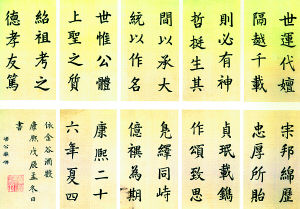 世運代嬗
隔越千載
則必有神
哲挺生其
間以承大
統以作名
世惟公體
上聖之質
紹祖考之
德孝友篤
宗邦綿歷
忠厚所胎
貞珉載鐫
作頌致思
鳧繹同峙
億襈為期
康熙二十
六年夏四
依金谷酒數
康熙戊辰孟冬日
書